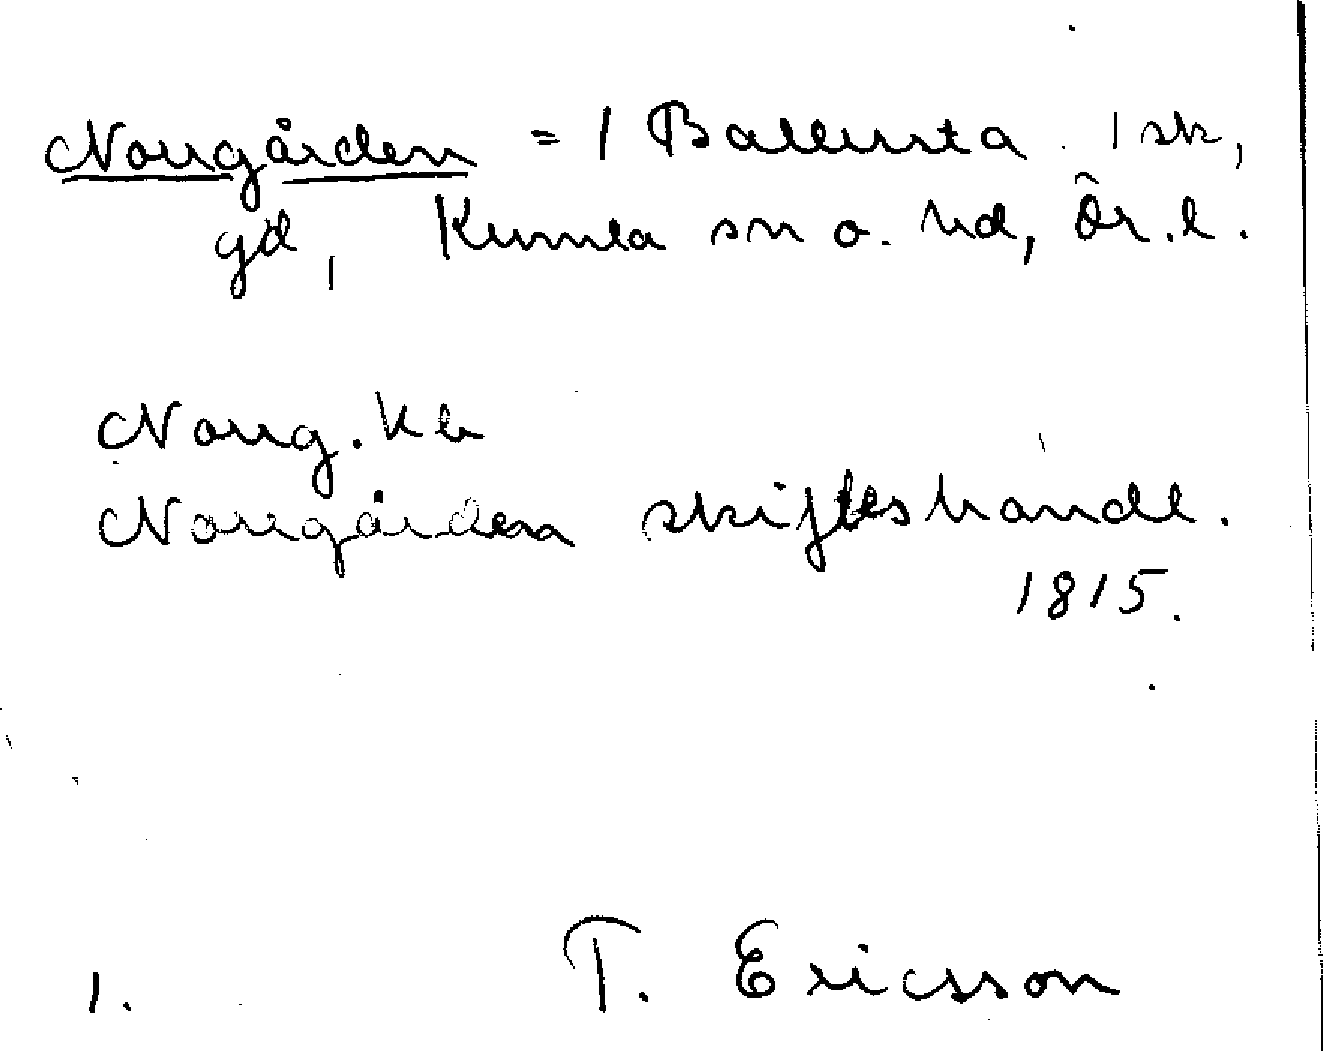 Norrgården = 1 Ballersta 1 sk,
gd, Kumla sn o. hd, Ör. l.
Norrg. kb
Norrgården skifteshandl.
1815.
1. T. Ericsson